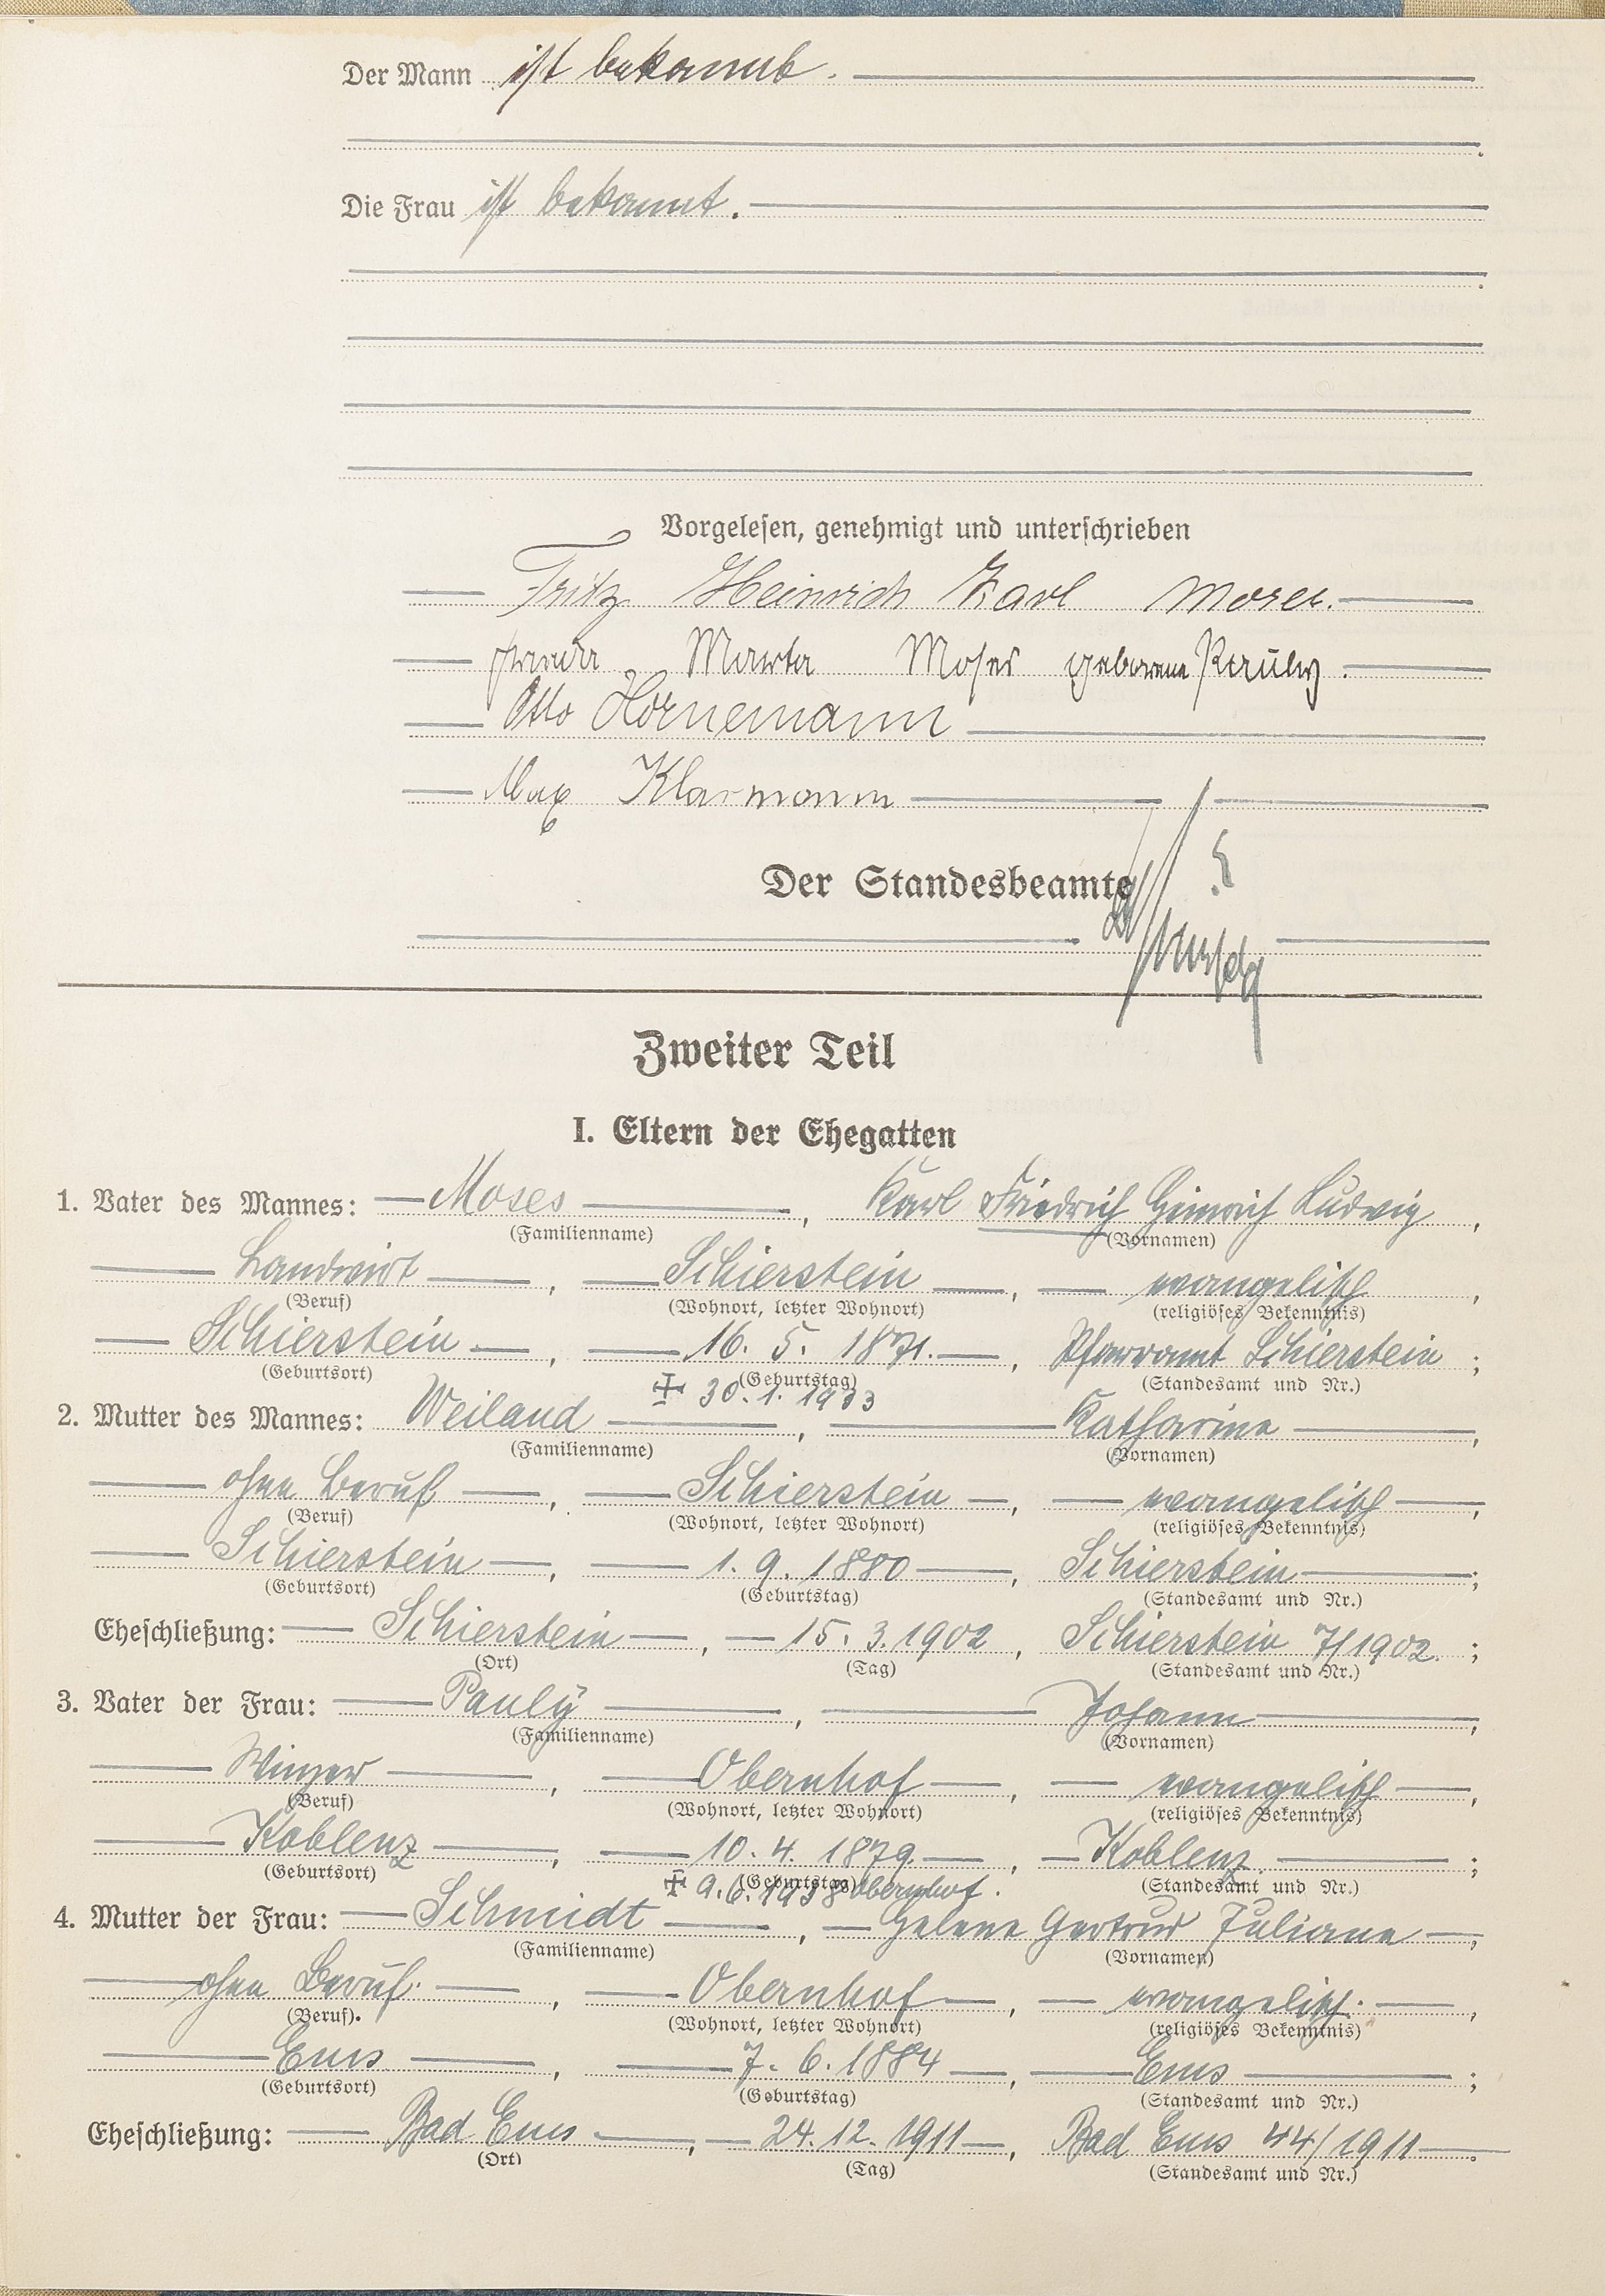 Der Mann ist bekannt.
Die Frau ist bekannt.
Vorgelesen, genehmigt und unterschrieben
Fritz Heinrich Karl Moses.
Marta Moses geborene Pauly.
Otto Hornemann
Max Klarmann
Der Standesbeamte
Zweiter Teil
I. Eltern der Ehegatten
1. Vater des Mannes: Moses, Karl Friedrich Heinrich Ludwig,
(Familienname) (Vornamen)
Landwirt, Schierstein, evangelisch,
(Beruf) (Wohnort, letzter Wohnort) (religiöses Bekenntnis)
Schierstein, 16. 5. 1871., Pfarramt Schierstein;
(Geburtsort) (Geburtstag) (Standesamt und Nr.)
30. 1. 1933
2. Mutter des Mannes: Weiland, Katharine,
(Familienname) (Vornamen)
ohne Beruf, Schierstein, evangelisch,
(Beruf) (Wohnort, letzter Wohnort) (religiöses Bekenntnis)
Schierstein, 1. 9. 1880, Schierstein;
(Geburtsort) (Geburtstag) (Standesamt und Nr.)
Eheschließung: Schierstein, 15. 3. 1902, Schierstein 7/1902.;
(Ort) (Tag) (Standesamt und Nr.)
3. Vater der Frau: Pauly, Johann,
(Familienname) (Vornamen)
Winzer, Obernhof, evangelisch,
(Beruf) (Wohnort, letzter Wohnort) (religiöses Bekenntnis)
Koblenz, 10. 4. 1879., Koblenz.;
(Geburtsort) (Geburtstag) (Standesamt und Nr.)
9. 6. 1938 Obernhof.
4. Mutter der Frau: Schmidt, Helene Gertrud Juliane,
(Familienname) (Vornamen)
ohne Beruf., Obernhof, evangelisch.,
(Beruf). (Wohnort, letzter Wohnort) (religiöses Bekenntnis)
Ems, 7. 6. 1884, Ems;
(Geburtsort) (Geburtstag) (Standesamt und Nr.)
Eheschließung: Bad Ems, 24. 12. 1911, Bad Ems 44/1911.
(Ort) (Tag) (Standesamt und Nr.)